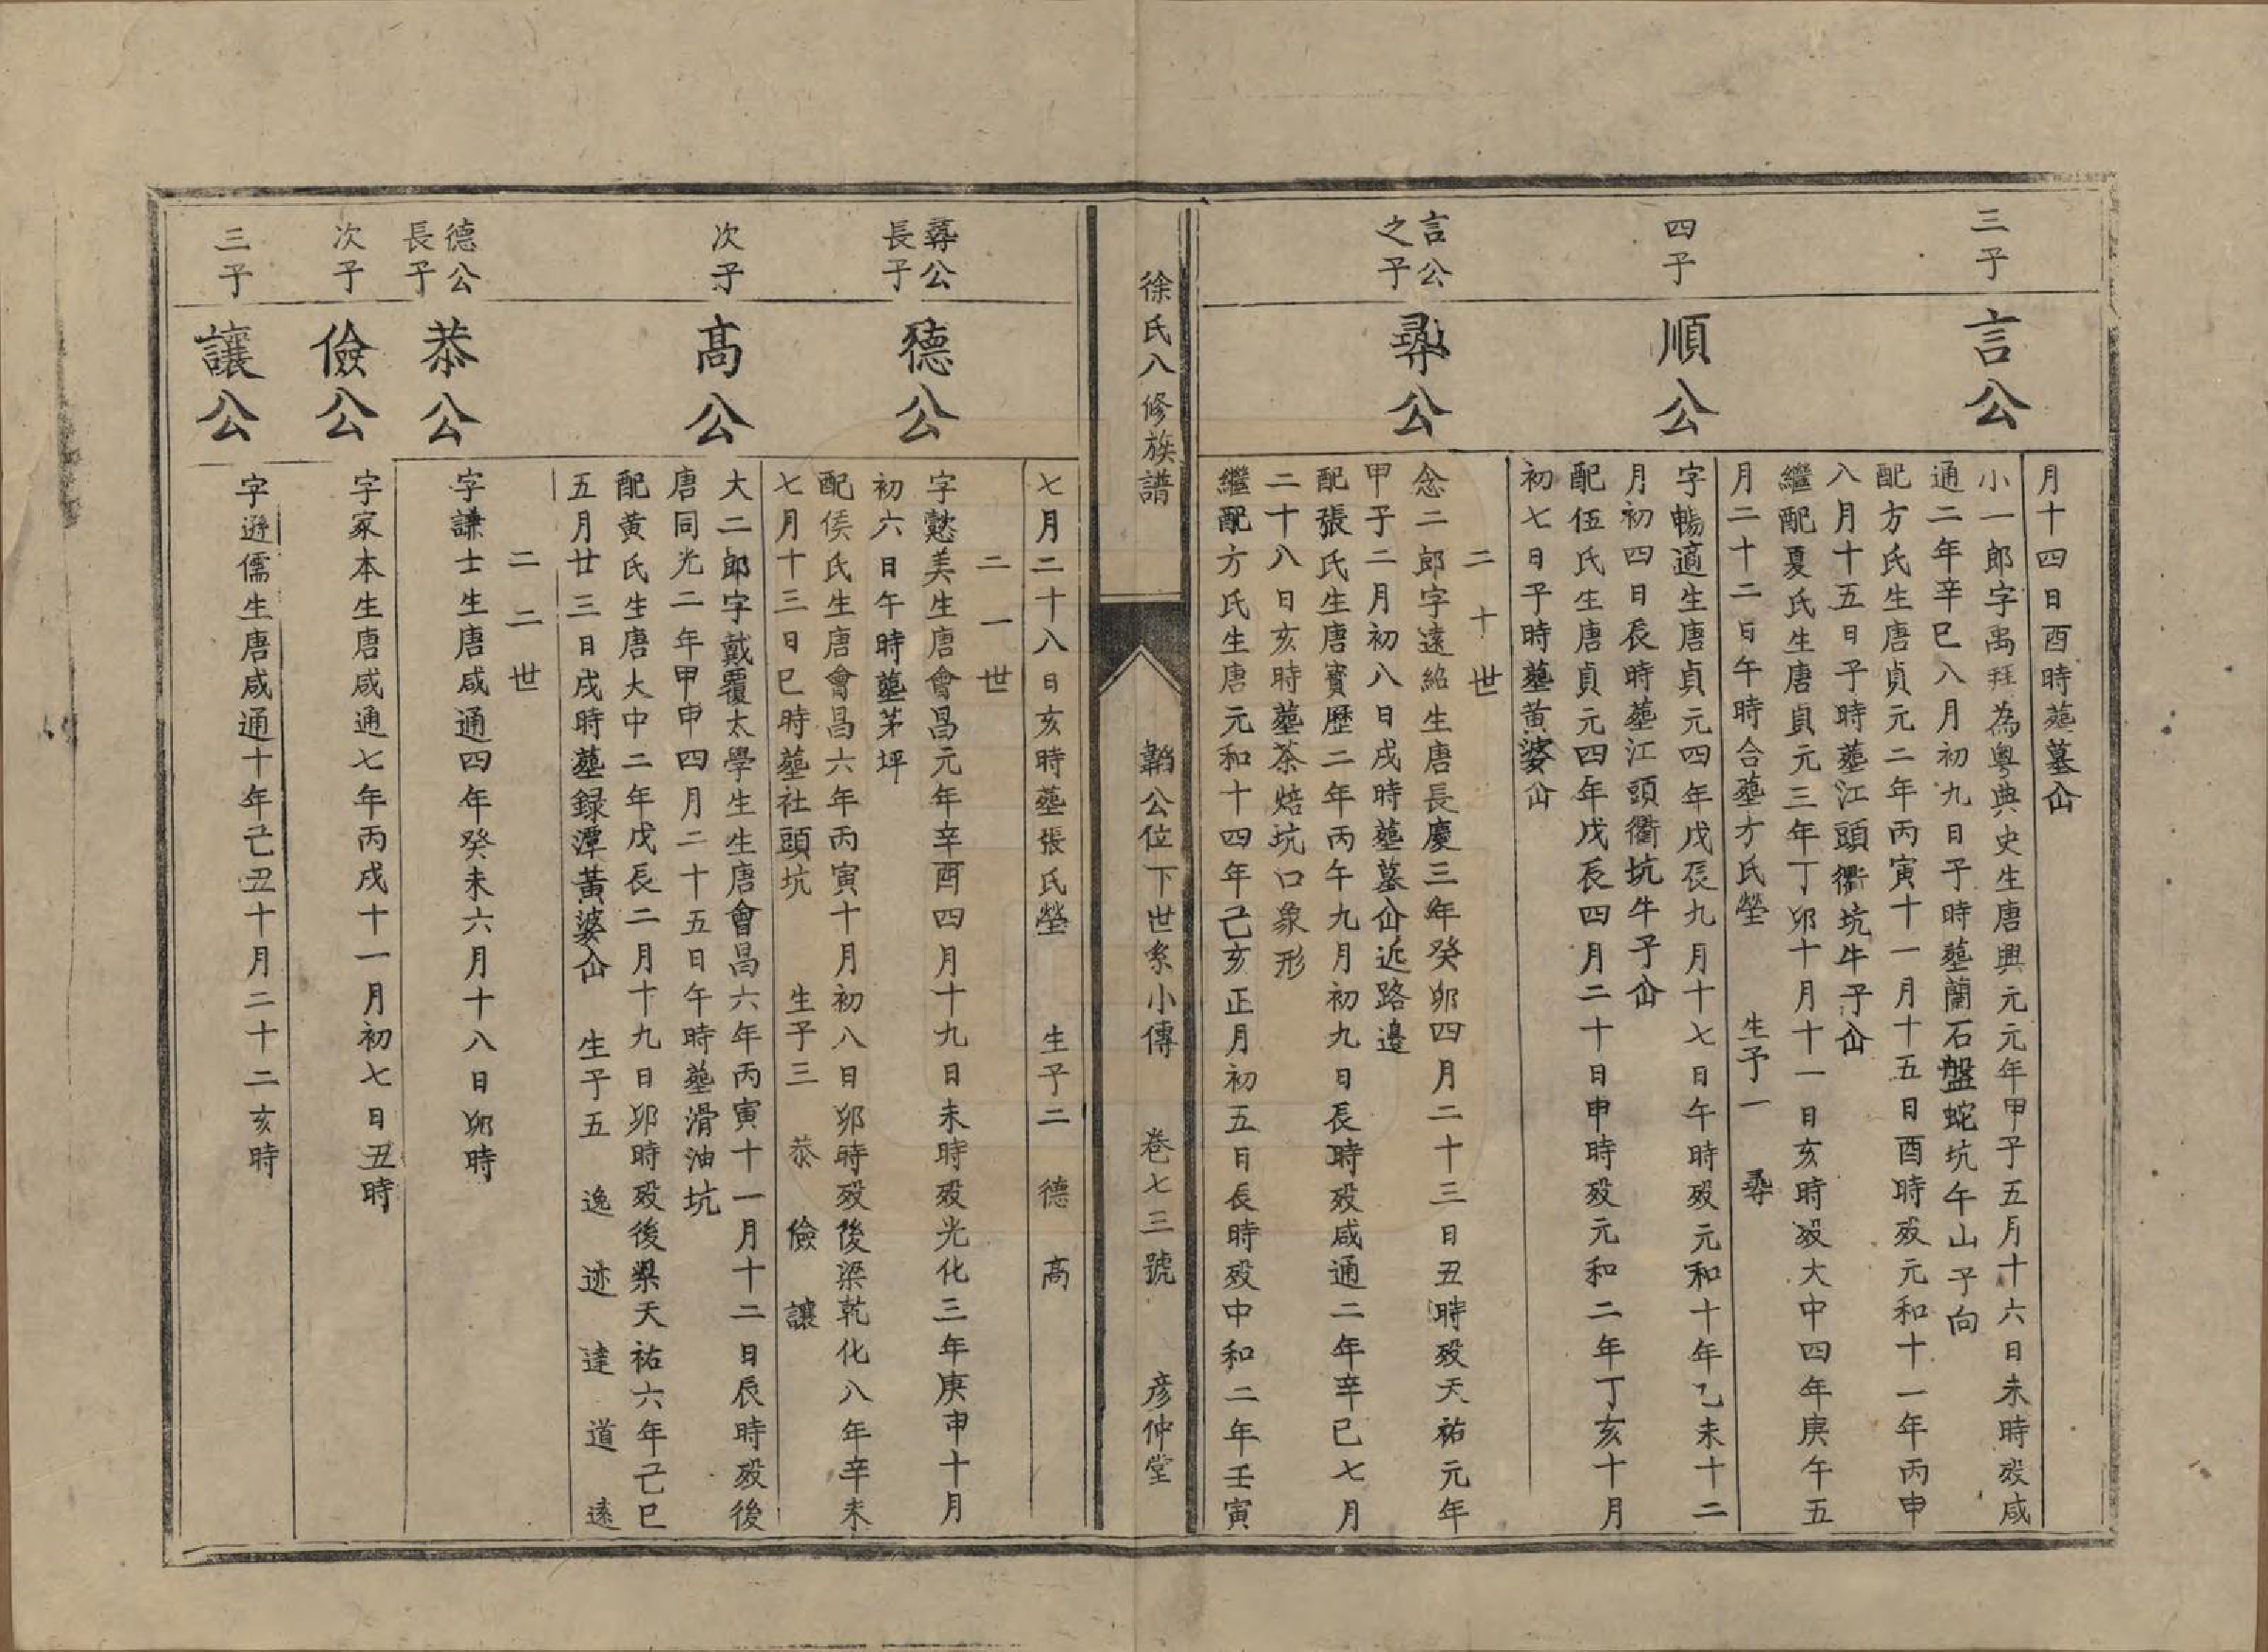 月十四日酉時塟墓仚
三子
言公
小一郎字禹拜為粵典史生唐興元元年甲子五月十六日未時歿咸
通二年辛巳八月初九日子時塟蘭石盤蛇坑午山子向
配方氏生唐貞元二年丙寅十一月十五日酉時歿元和十一年丙申
八月十五日子時塟江頭衢坑牛子仚
繼配夏氏生唐貞元三年丁卯十月十一日亥時歿大中四年庚午五
月二十二日午時合塟方氏塋 生子一 尋
四子
順公
字暢適生唐貞元四年戊辰九月十七日午時歿元和十年乙未十二
月初四日辰時塟江頭衢坑牛子仚
配伍氏生唐貞元四年戊辰四月二十日申時歿元和二年丁亥十月
初七日子時塟黃婆仚
二十世
言公之子
尋公
念二郎字遠紹生唐長慶三年癸卯四月二十三日丑時歿天祐元年
甲子二月初八日戌時塟墓仚近路邊
配張氏生唐寶歷二年丙午九月初九日長時歿咸通二年辛巳七月
二十八日亥時塟茶焙坑口象形
繼配方氏生唐元和十四年己亥正月初五日長時歿中和二年壬寅
徐氏八修族譜 韜公位下世系小傳 卷七三號 彥仲堂
七月二十八日亥時塟張氏塋 生子二 德 高
二一世
尋公長子
德公
字懿美生唐會昌元年辛酉四月十九日未時歿光化三年庚申十月
初六日午時塟茅坪
配侯氏生唐會昌六年丙寅十月初八日卯時歿後梁乾化八年辛未
七月十三日巳時塟社頭坑 生子三 恭 儉 讓
次子
高公
大二郎字戴覆太學生生唐會昌六年丙寅十一月十二日辰時歿後
唐同光二年甲申四月二十五日午時塟滑油坑
配黃氏生唐大中二年戊長二月十九日卯時歿後梁天祐六年己巳
五月廿三日戌時塟録潭黃婆仚 生子五 逸 迹 達 道 遠
二二世
德公長子
恭公
字謙士生唐咸通四年癸未六月十八日卯時
次子
儉公
字家本生唐咸通七年丙戌十一月初七日丑時
三子
讓公
字遜儒生唐咸通十年己丑十月二十二亥時